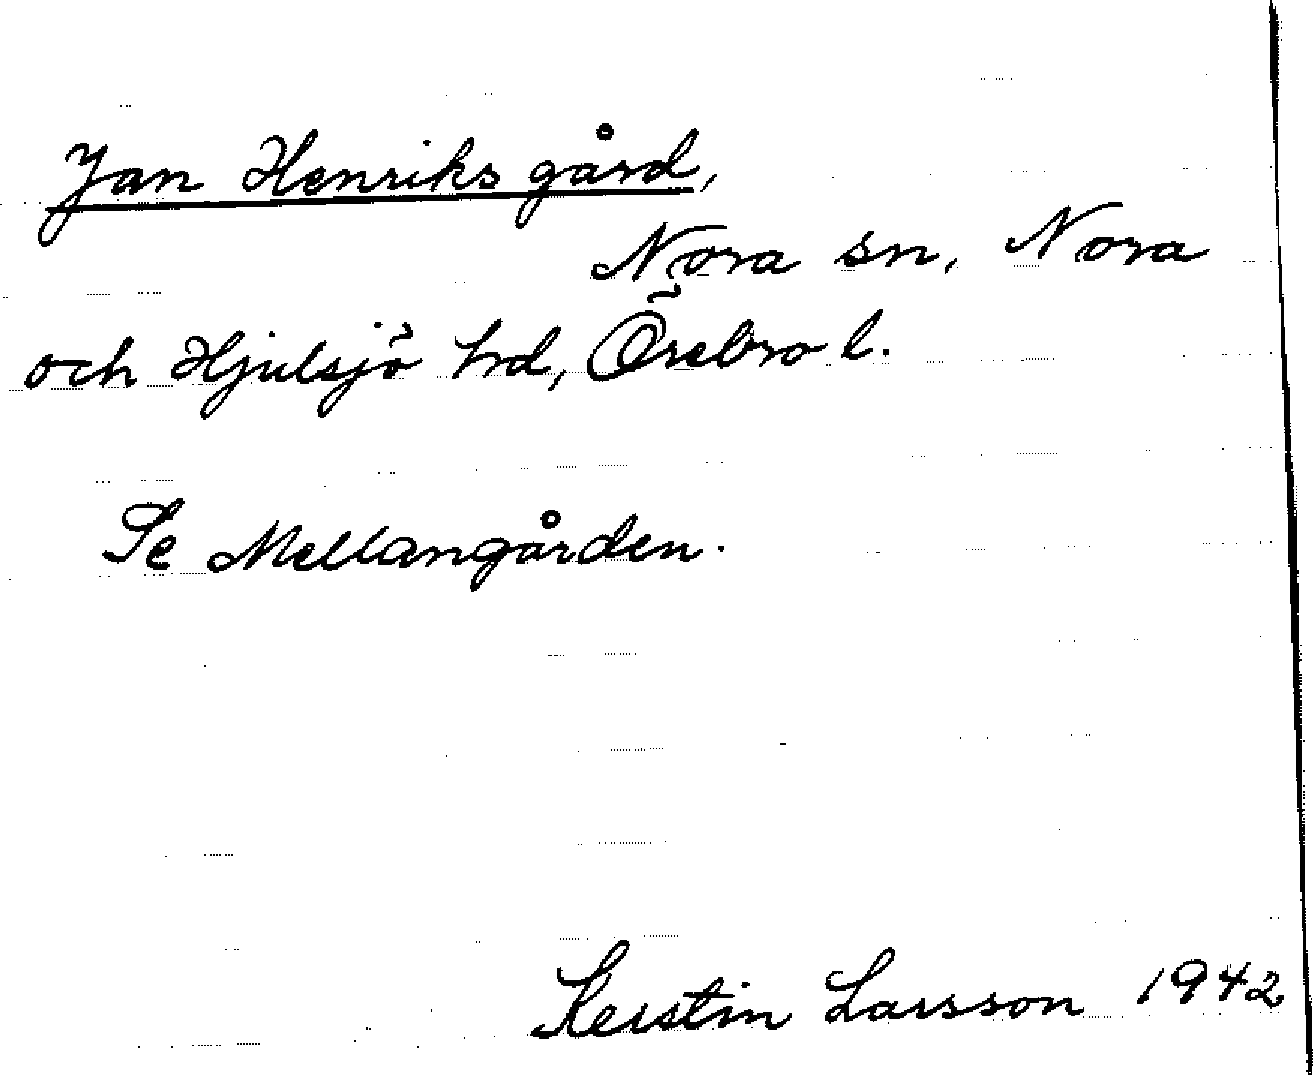 Jan Henriks gård,
Nora sn, Nora
och Hjulsjö hd, Örebro l.
Se Mellangården.
Kerstin Larsson 1942